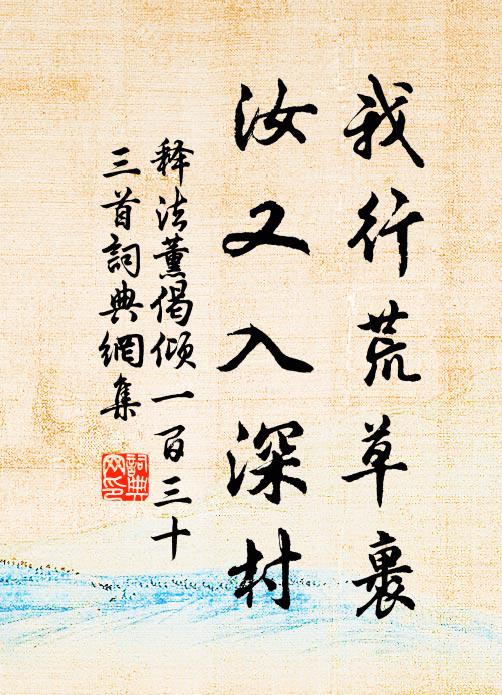 我行荒草裏
汝又入深村
释法薰偈倾一百三十
三首詞典網集
詞典
网印